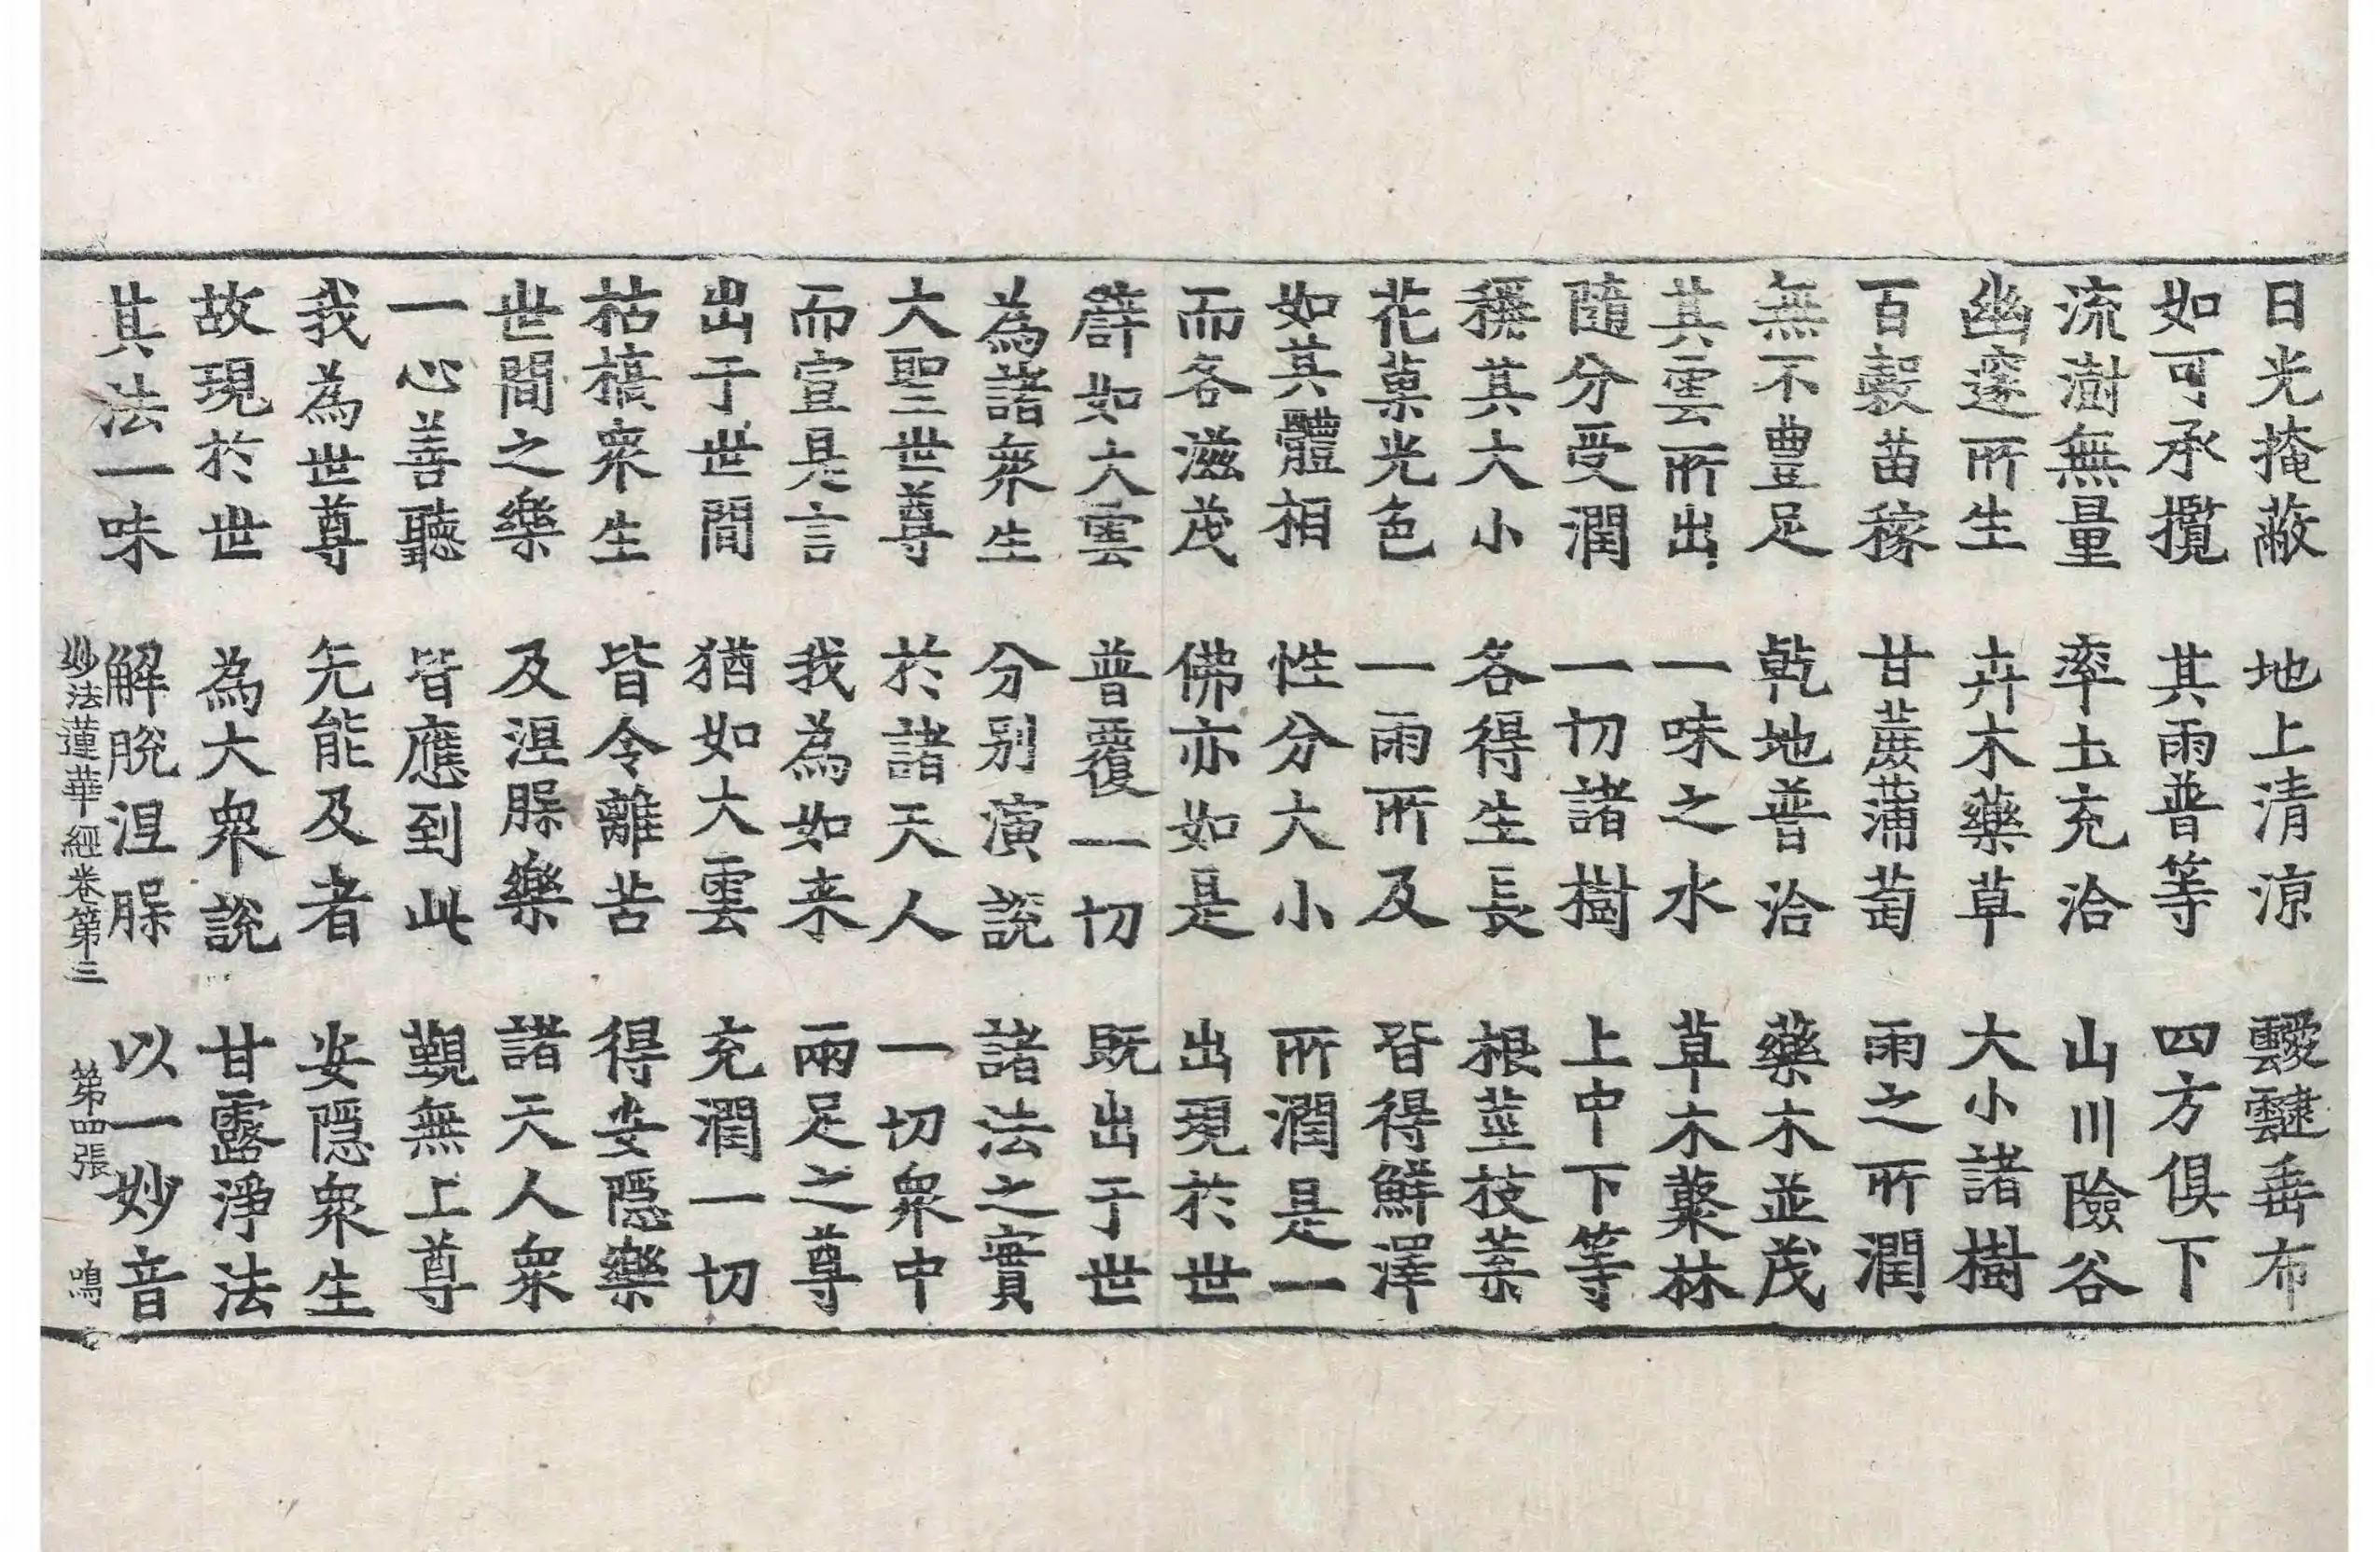 日光掩蔽 地上清涼 靉靆垂布
如可承攬 其雨普等 四方俱下
流澍無量 率土充洽 山川險谷
幽邃所生 卉木藥草 大小諸樹
百穀苗稼 甘蔗蒲萄 雨之所潤
無不豊足 乾地普洽 藥木並茂
其雲所出 一味之水 草木藂林
隨分受潤 一切諸樹 上中下等
稱其大小 各得生長 根莖枝葉
花菓光色 一雨所及 皆得鮮澤
如其體相 性分大小 所潤是一
而各滋茂 佛亦如是 出現於世
譬如大雲 普覆一切 既出于世
為諸衆生 分別演說 諸法之實
大聖世尊 於諸天人 一切衆中
而宣是言 我為如来 兩足之尊
出于世間 猶如大雲 充潤一切
枯槁衆生 皆令離苦 得安隱樂
世間之樂 及涅槃樂 諸天人衆
一心善聽 皆應到此 覲無上尊
我為世尊 无能及者 安隱衆生
故現於世 為大衆說 甘露淨法
其法一味 解脫涅槃 以一妙音
妙法蓮華經卷第三 第四張 鳴